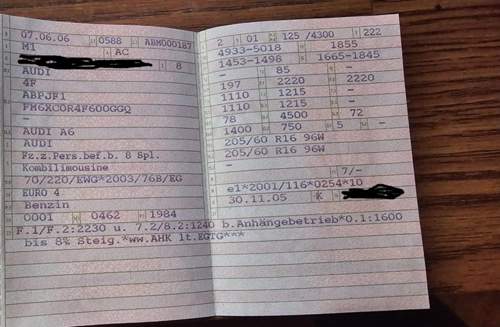 07.06.06 0588 ABM000187
M1 AC
8
AUDI
4F
ABPJF1
FM6XC0R4F600GGQ
-
AUDI A6
AUDI
Fz.z.Pers.bef.b. 8 Spl.
Kombilimousine
70/220/EWG*2003/76B/EG
EURO 4
Benzin
0001 0462 1984
F.1/F.2:2230 u. 7.2/8.2:1240 b.Anhängebetrieb*0.1:1600
bis 8% Steig.*ww.AHK lt.EGTG***
2 01 125 /4300 222
4933-5018 1855
1453-1498 1665-1845
- 85 -
197 2220 2220
1110 1215 -
1110 1215 -
78 4500 72
1400 750 5 -
205/60 R16 96W
205/60 R16 96W
-
7/-
e1*2001/116*0254*10
30.11.05 K